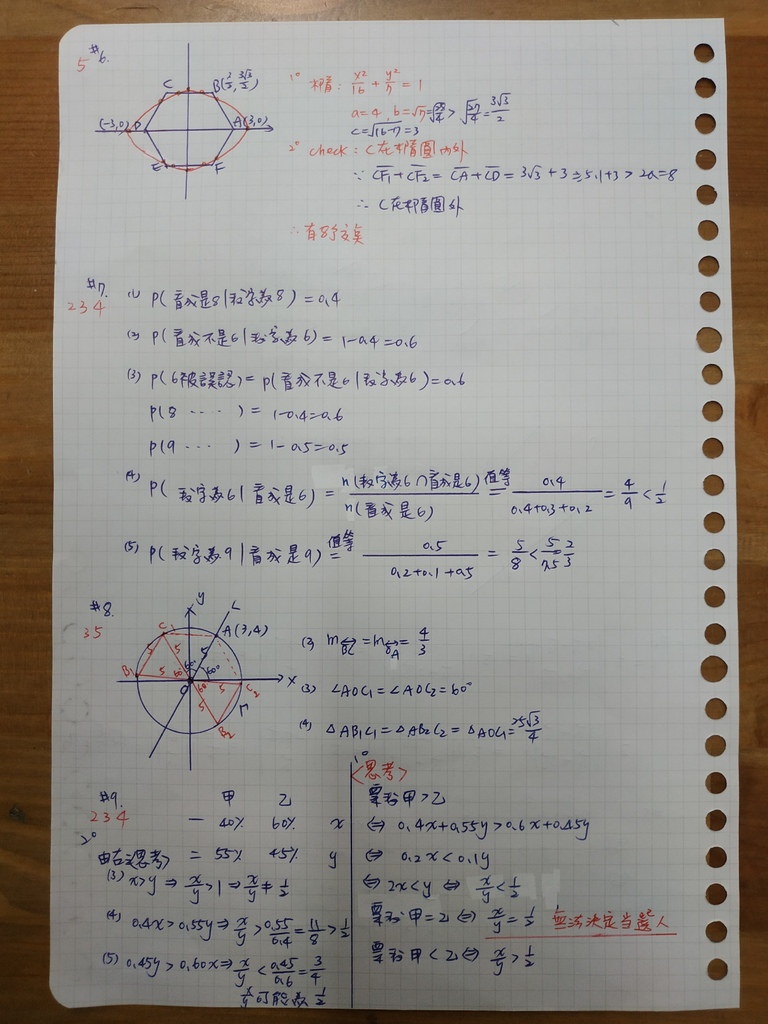 #6.
5
C
B(3/2, 3√3/2)
(-3,0) D
A(3,0)
E
F
1° 橢圓: x²/16 + y²/7 = 1
a=4, b=√7=√(28/4) > √(27/4) = 3√3/2
c=√(16-7)=3
2° check: C在橢圓內外
∵ CF₁+CF₂ = CA+CD = 3√3+3≒5.1+3 > 2a=8
∴ C在橢圓外
∴有8個交點
#7.
234
(1) P(看成是8|數字為8)=0.4
(2) P(看成不是6|數字為6)=1-0.4=0.6
(3) P(6被誤認)=P(看成不是6|數字為6)=0.6
P(8 ‥‥ )= 1-0.4=0.6
P(9 ‥‥ )= 1-0.5=0.5
(4) P(數字為6|看成是6)= n(數字為6∩看成是6)/n(看成是6) 值等= 0.4/(0.4+0.3+0.2) = 4/9 < 1/2
(5) P(數字為9|看成是9) 值等= 0.5/(0.2+0.1+0.5) = 5/8 < 5/7.5 = 2/3
#8.
35
y
L
C₁
A(3,4)
5 5 5
60° 60° 60°
B₁ 5 O 5 C₂ x
60°
5
B₂
Γ
(2) m BC = m OA = 4/3
(3) ∠AOC₁=∠AOC₂=60°
(4) △AB₁C₁=△AB₂C₂=△AOC₁=25√3/4
#9.
234
甲 乙
一 40% 60% x
2°
由右之<思考> 二 55% 45% y
(3) x>y ⇒ x/y>1 ⇒ x/y≠1/2
(4) 0.4x>0.55y ⇒ x/y > 0.55/0.4 = 11/8 > 1/2
(5) 0.45y>0.60x ⇒ x/y < 0.45/0.6 = 3/4
x/y可能為1/2
1°
<思考>
票數甲>乙
⇔ 0.4x+0.55y>0.6x+0.45y
⇔ 0.2x<0.1y
⇔ 2x<y ⇔ x/y<1/2
票數甲=乙 ⇔ x/y=1/2 無法決定當選人
票數甲<乙 ⇔ x/y>1/2